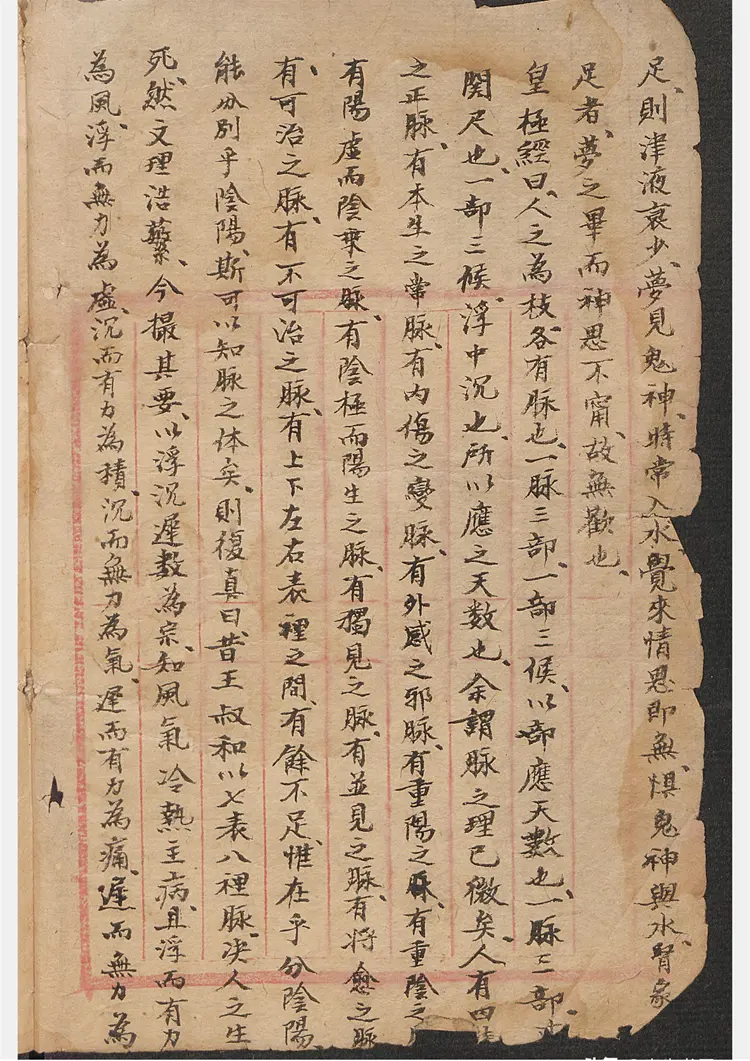 足、則津液衰少、夢見鬼神、時常入水、覺來情思即無、惧鬼神與水、腎家
足者、夢之畢而神思不甯、故無歡也、
皇極經曰、人之為枝各有脉也、一脉三部、一部三候、以部應天數也、一脉三部、
関尺也、一部三候、浮中沉也、所以應之天數也、余謂脉之理已微矣、人有四
之正脉、有本生之常脉、有内傷之變脉、有外感之邪脉、有重陽之脉、有重陰之
有陽虛而陰乗之脉、有陰極而陽生之脉、有獨見之脉、有並見之脉、有将愈之脉
有、有可治之脉、有不可治之脉、有上下左右表裡之間、有餘不足、惟在乎分陰陽、
能分別乎陰陽、斯可以知脉之体矣、則復真曰、昔王叔和以七表八裡脉、决人之生
死、然文理浩蘩、今撮其要、以浮沉遲数為宗、知風氣冷熱主病、且浮而有力
為風、浮而無力為虛、沉而有力為積、沉而無力為氣、遲而有力為痛、遲而無力為